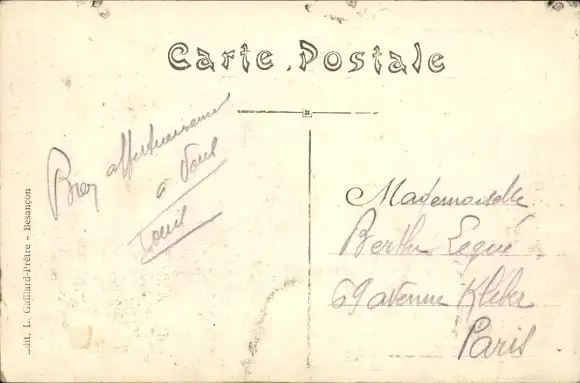 Carte Postale
Bien affectueusement
à vous
Louis
Mademoiselle
Berthe Legué
69 avenue Kléber
Paris
Edit. L. Gaillard-Prêtre - Besançon